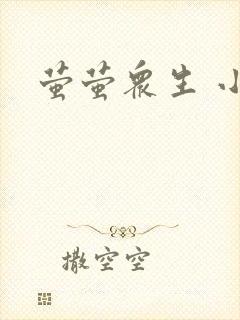 萤萤众生 小
撒空空